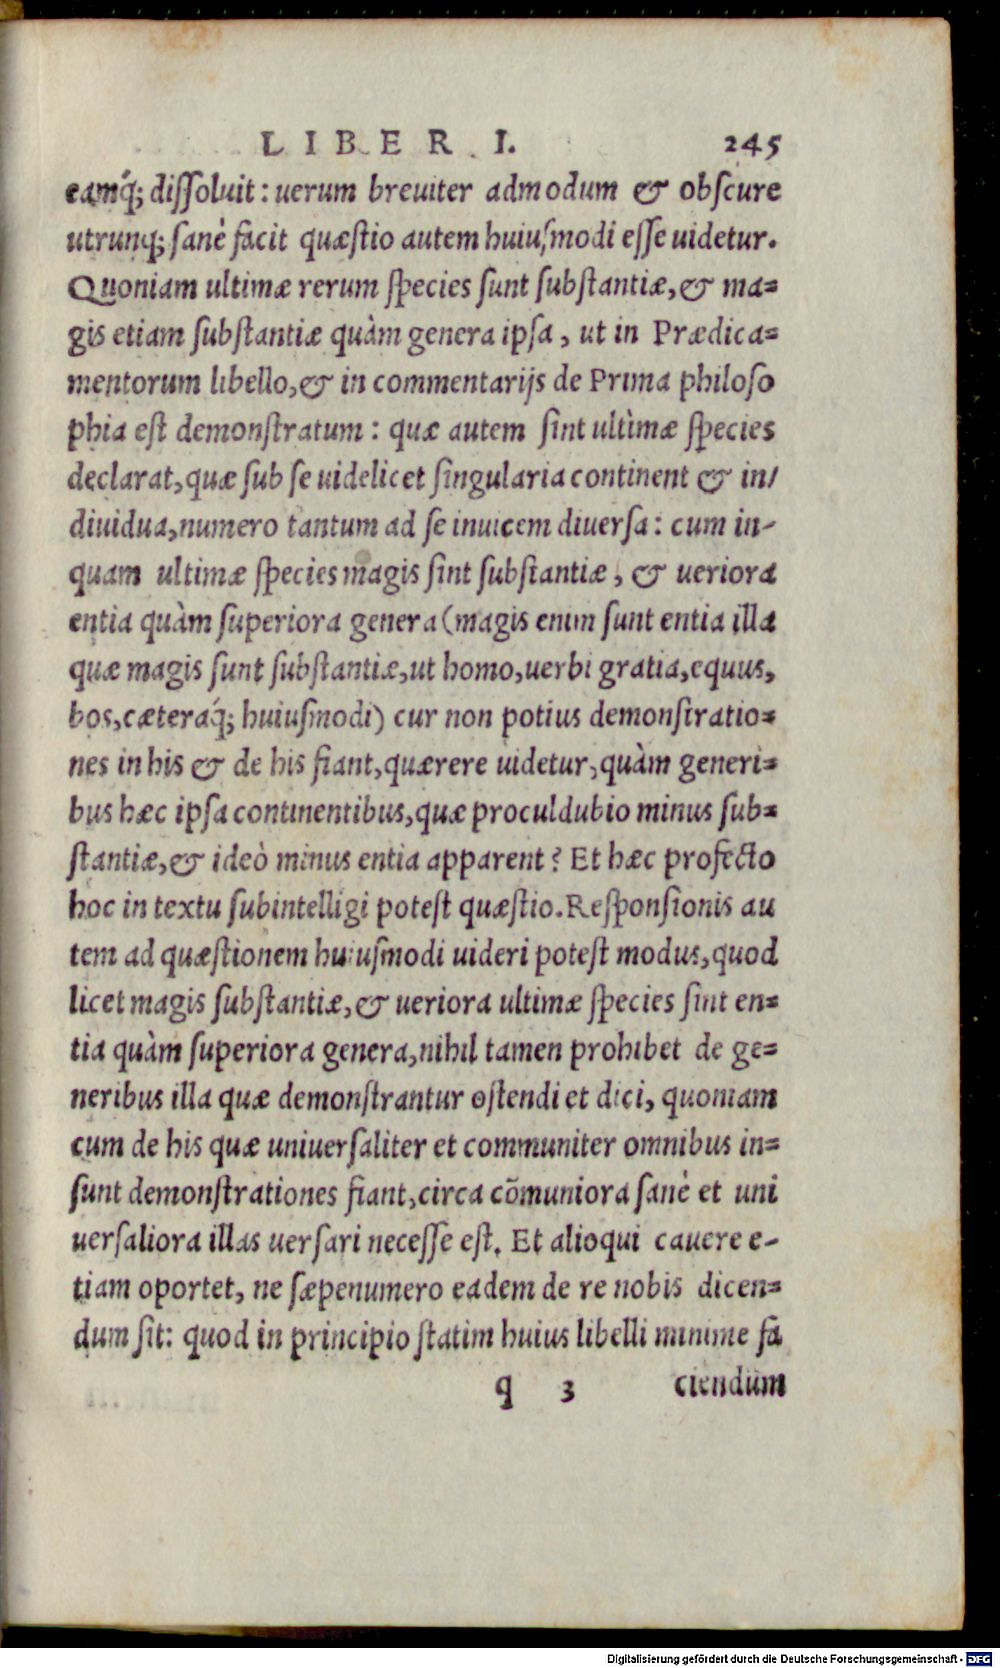 LIBER I. 245
eamq́; dissoluit: uerum breuiter admodum & obscure
utrunq; sanè facit quæstio autem huiusmodi esse uidetur.
Quoniam ultimæ rerum species sunt substantiæ, & ma=
gis etiam substantiæ quàm genera ipsa, ut in Prædica=
mentorum libello, & in commentarijs de Prima philoso
phia est demonstratum: quæ autem sint ultimæ species
declarat, quæ sub se uidelicet singularia continent & in/
diuidua, numero tantum ad se inuicem diuersa: cum in-
quam ultimæ species magis sint substantiæ, & ueriora
entia quàm superiora genera (magis enim sunt entia illa
quæ magis sunt substantiæ, ut homo, uerbi gratia, equus,
bos, cæteraq́; huiusmodi) cur non potius demonstratio=
nes in his & de his fiant, quærere uidetur, quàm generi=
bus hæc ipsa continentibus, quæ proculdubio minus sub=
stantiæ, & ideò minus entia apparent? Et hæc profecto
hoc in textu subintelligi potest quæstio. Responsionis au
tem ad quæstionem huiusmodi uideri potest modus, quod
licet magis substantiæ, & ueriora ultimæ species sint en=
tia quàm superiora genera, nihil tamen prohibet de ge=
neribus illa quæ demonstrantur ostendi et dici, quoniam
cum de his quæ uniuersaliter et communiter omnibus in=
sunt demonstrationes fiant, circa cõmuniora sanè et uni
uersaliora illas uersari necesse est. Et alioqui cauere e-
tiam oportet, ne sæpenumero eadem de re nobis dicen=
dum sit: quod in principio statim huius libelli minime fa
q 3 ciendum
Digitalisierung gefördert durch die Deutsche Forschungsgemeinschaft - DFG